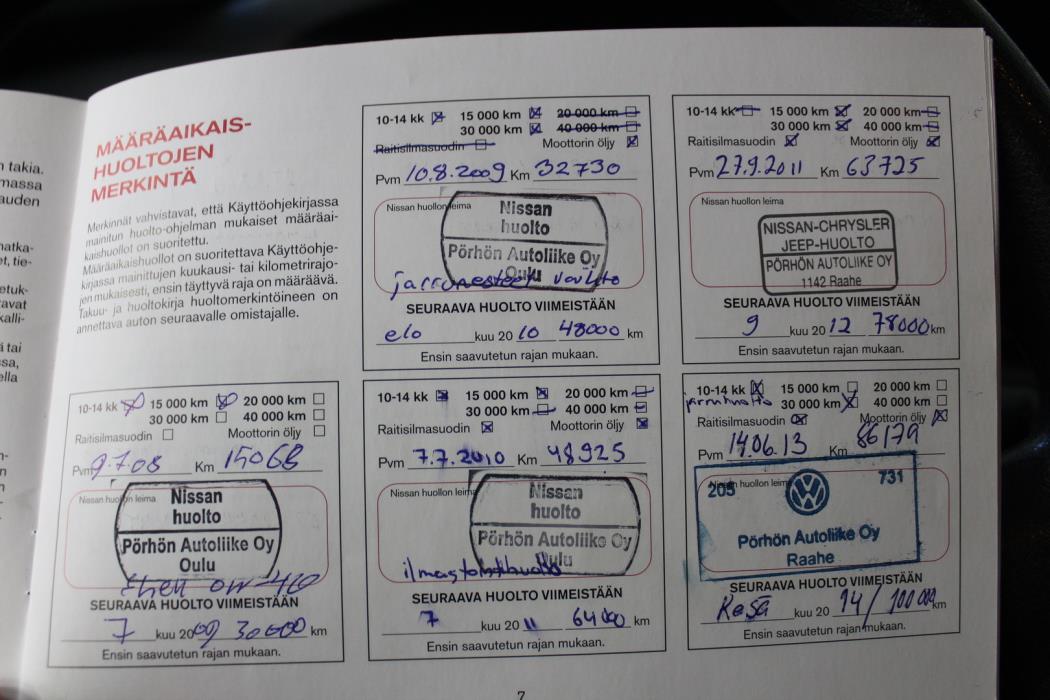 n takia.
massa
auden
natka-
et, tie-
etuk-
tavat
kalli-
ä tai
ssa,
ella
MÄÄRÄAIKAIS-
HUOLTOJEN
MERKINTÄ
Merkinnät vahvistavat, että Käyttöohjekirjassa
mainitun huolto-ohjelman mukaiset määräai-
kaishuollot on suoritettu.
Määräaikaishuollot on suoritettava Käyttöohje-
kirjassa mainittujen kuukausi- tai kilometrirajo-
jen mukaisesti, ensin täyttyvä raja on määräävä.
Takuu- ja huoltokirja huoltomerkintöineen on
annettava auton seuraavalle omistajalle.
10-14 kk 15 000 km 20 000 km
30 000 km 40 000 km
Raitisilmasuodin Moottorin öljy
Pvm 10.8.2009 Km 32730
Nissan huollon leima
Nissan
huolto
Pörhön Autoliike Oy
Oulu
jarrunesteet vaihto
SEURAAVA HUOLTO VIIMEISTÄÄN
elo kuu 20 10 48000 km
Ensin saavutetun rajan mukaan.
10-14 kk 15 000 km 20 000 km
30 000 km 40 000 km
Raitisilmasuodin Moottorin öljy
Pvm 27.9.2011 Km 63725
Nissan huollon leima
NISSAN-CHRYSLER
JEEP-HUOLTO
PÖRHÖN AUTOLIIKE OY
1142 Raahe
SEURAAVA HUOLTO VIIMEISTÄÄN
9 kuu 20 12 78000 km
Ensin saavutetun rajan mukaan.
10-14 kk 15 000 km 20 000 km
30 000 km 40 000 km
Raitisilmasuodin Moottorin öljy
Pvm 9.7.08 Km 15068
Nissan huollon leima
Nissan
huolto
Pörhön Autoliike Oy
Oulu
SEURAAVA HUOLTO VIIMEISTÄÄN
7 kuu 2009 30000 km
Ensin saavutetun rajan mukaan.
10-14 kk 15 000 km 20 000 km
30 000 km 40 000 km
Raitisilmasuodin Moottorin öljy
Pvm 7.7.2010 Km 48925
Nissan huollon leima
Nissan
huolto
Pörhön Autoliike Oy
Oulu
ilmastointihuolto
SEURAAVA HUOLTO VIIMEISTÄÄN
7 kuu 20 11 64000 km
Ensin saavutetun rajan mukaan.
10-14 kk 15 000 km 20 000 km
jarruhuolto 30 000 km 40 000 km
Raitisilmasuodin Moottorin öljy
Pvm 14.06.13 Km 86179
Nissan huollon leima
205 731
Pörhön Autoliike Oy
Raahe
SEURAAVA HUOLTO VIIMEISTÄÄN
Kesä kuu 20 14/ 100 000 km
Ensin saavutetun rajan mukaan.
7